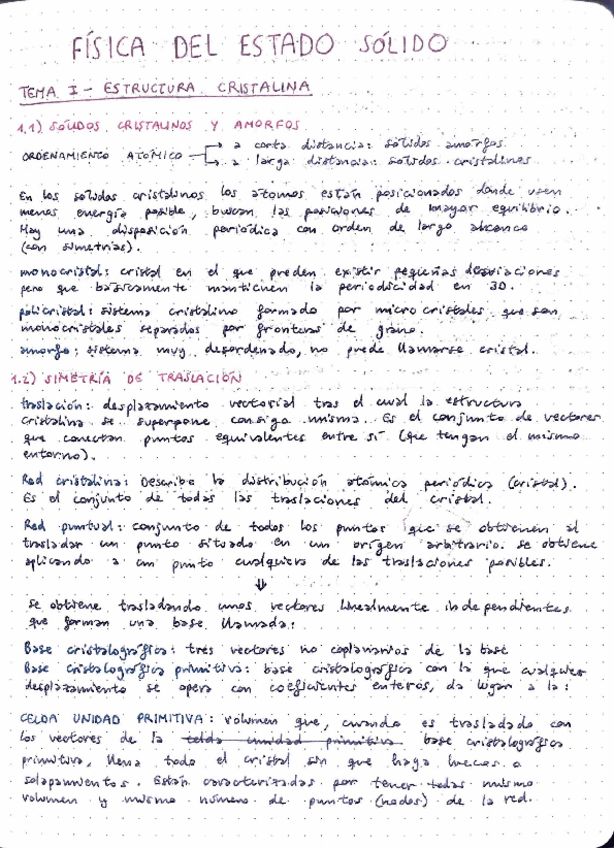 FÍSICA DEL ESTADO SÓLIDO
TEMA I - ESTRUCTURA CRISTALINA
1.1) SÓLIDOS CRISTALINOS Y AMORFOS
a corta distancia: sólidos amorfos
ORDENAMIENTO ATÓMICO
a larga distancia: sólidos cristalinos
En los sólidos cristalinos los átomos están posicionados donde usen
menos energía posible, buscan las posiciones de mayor equilibrio.
Hay una disposición periódica con orden de largo alcance
(con simetrías).
monocristal: cristal en el que pueden existir pequeñas desviaciones
pero que básicamente mantienen la periodicidad en 3D.
policristal: sistema cristalino formado por microcristales que son
monocristales separados por fronteras de grano.
amorfo: sistema muy desordenado, no puede llamarse cristal.
1.2) SIMETRÍA DE TRASLACIÓN
traslación: desplazamiento vectorial tras el cual la estructura
cristalina se superpone consigo misma. Es el conjunto de vectores
que conectan puntos equivalentes entre sí (que tengan el mismo
entorno).
Red cristalina: Describe la distribución atómica periódica (cristal).
Es el conjunto de todas las traslaciones del cristal.
Red puntual: conjunto de todos los puntos que se obtienen al
trasladar un punto situado en un origen arbitrario. Se obtiene
aplicando a un punto cualquiera de las traslaciones posibles.
⇓
Se obtiene trasladando unos vectores linealmente independientes
que forman una base llamada:
Base cristalográfica: tres vectores no coplanarios de la base
Base cristalográfica primitiva: base cristalográfica con la que cualquier
desplazamiento se opera con coeficientes enteros, da lugar a la:
CELDA UNIDAD PRIMITIVA: volumen que, cuando es trasladado con
los vectores de la celda unidad primitiva base cristalográfica
primitiva, llena todo el cristal sin que haya huecos o
solapamientos. Están caracterizadas por tener todas mismo
volumen y mismo número de puntos (nodos) de la red.